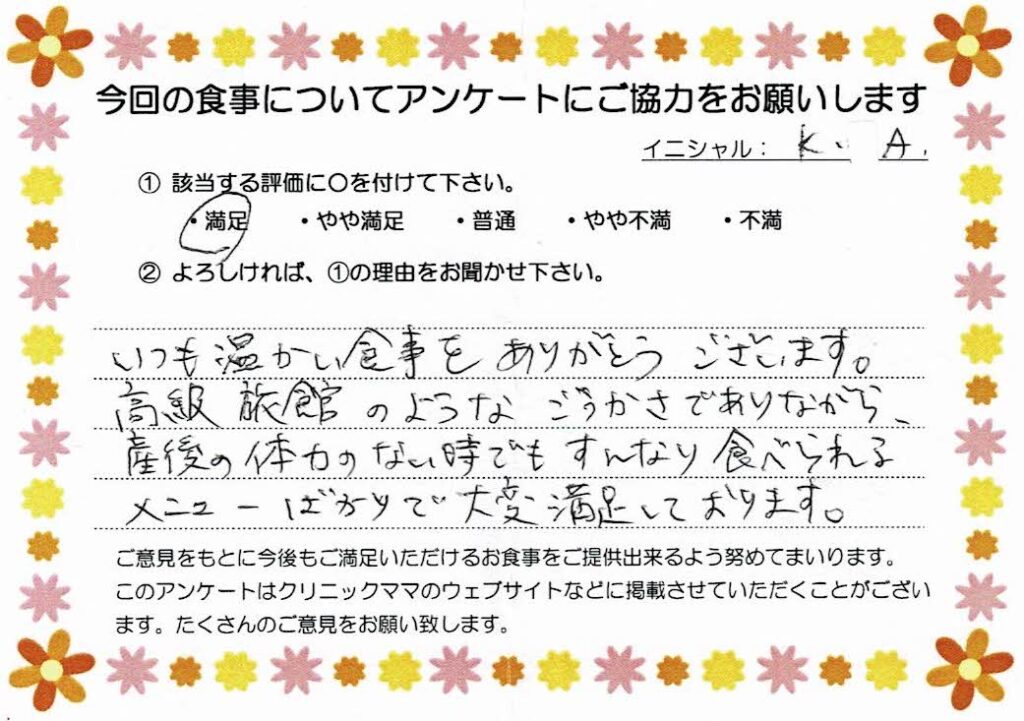 今回の食事についてアンケートにご協力をお願いします
イニシャル： K. A.
① 該当する評価に〇を付けて下さい。
・満足 ・やや満足 ・普通 ・やや不満 ・不満
② よろしければ、①の理由をお聞かせ下さい。
いつも温かい食事を ありがとう ございます。
高級 旅館 のような ごうかさでありながら、
産後の体力のない時でも すんなり 食べられる
メニューばかりで 大変 満足しております。
ご意見をもとに今後もご満足いただけるお食事をご提供出来るよう努めてまいります。
このアンケートはクリニックママのウェブサイトなどに掲載させていただくことがござい
ます。たくさんのご意見をお願い致します。